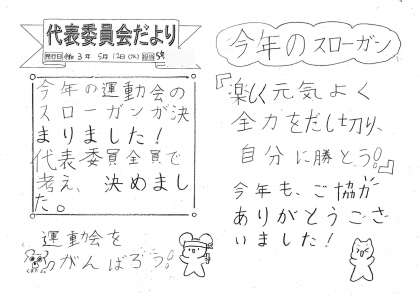 代表委員会だより
発行日 令和3年 5月 12日(水) 担当5年
今年の運動会の
スローガンが決
まりました!
代表委員全員で
考え、決めまし
た。
運動会を
がんばろう!
今年のスローガン
『楽しく元気よく
全力をだし切り、
自分に勝とう!』
今年も、ご協力
ありがとうござ
いました!